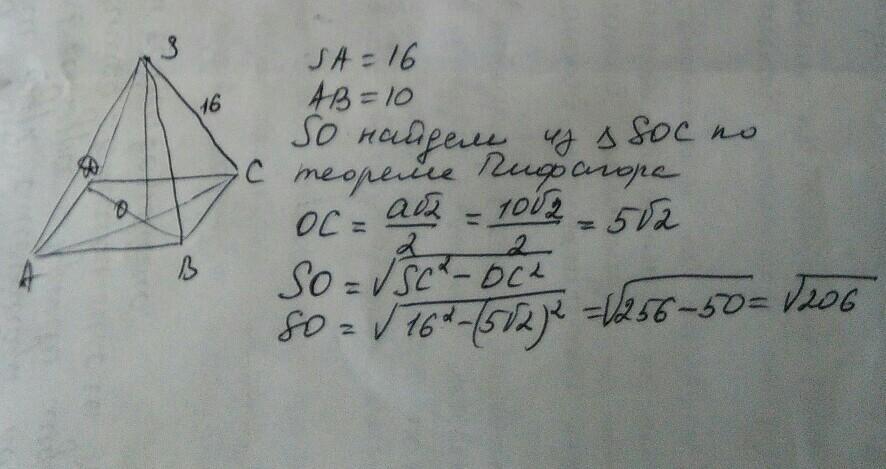 S
16
D
C
O
A
B
SA = 16
AB = 10
SO найдем из Δ SOC по
теореме Пифагора
OC = a√2/2 = 10√2/2 = 5√2
SO = √(SC² - OC²)
SO = √(16² - (5√2)²) = √(256 - 50) = √206